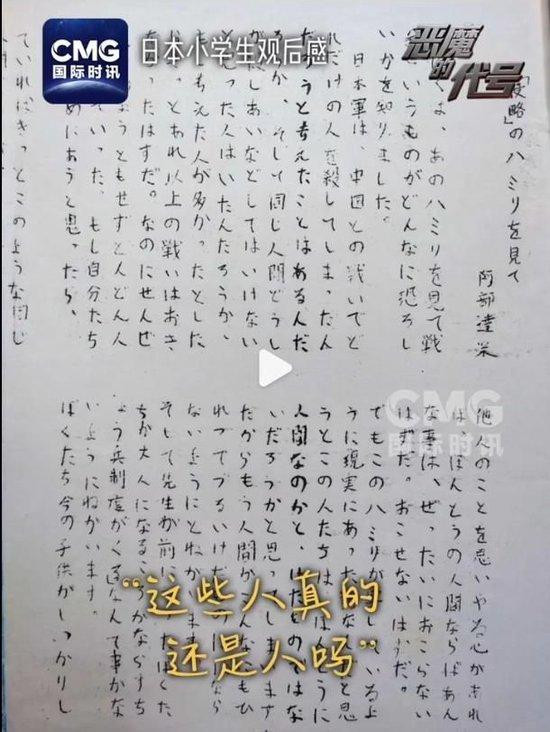 CMG
国际时讯
日本小学生观后感
恶魔的代号
略」のハミリを見て
阿部達栄
くは、あのハミリを見て戦
いうものがどんなに恐ろし
いかを知りました。
日本軍は、中国との戦いでど
れだけの人を殺してしまったん
だろうと考えたことはあるんだ
ろうか。そして同じ人間どうし
が殺しあいなどしてはいけない
と思った人はいたんだろうか。
考えた人が多かったとした
とあれ以上の戦いはおき
ったはずだ。なのにせんぜ
ようともせずとんどん人
ていった。もし自分たち
めにあうと思ったら、
ていればきっとこのような同じ
他人のことを思いやる心があれ
ばほんとうの人間ならばあん
な事は、ぜったいにおこらない
はずだ。おこせないはずだ。
でもこのハミリが しているよ
うに現実にあった と思
うとこの人たちは ほんとうに
人間なのかと、けものではな
いだろうかと思ってしまいます
だからもう人間が もひ
れつでずるいけだ なら
ないようにとねがいます
そして先生が前に ぼくた
ちが大人になるこ かならずち
ょう兵制度がくるなんて事がな
いようにねがいます。
ぼくたち今の子供がしっかりし
CMG
国际时讯
“这些人真的
还是人吗”